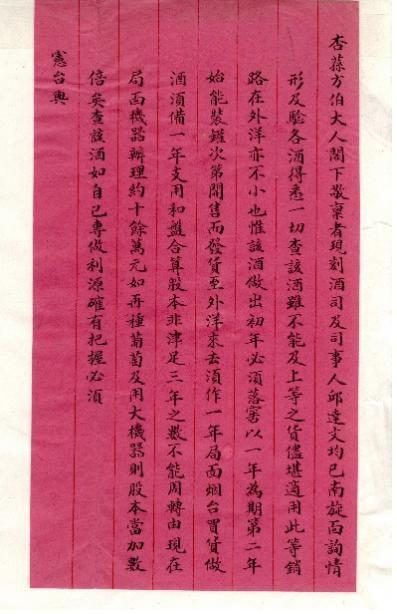 杏蓀方伯大人閣下敬稟者現刻酒司及司事人邱達文均已南旋面詢情
形及驗各酒得悉一切查該酒雖不能及上等之貨儘堪適用此等銷
路在外洋亦不小也惟該酒做出初年必須落窖以一年為期第二年
始能裝罐次第開售而發貨至外洋來去須作一年局面烟台買貨做
酒須備一年支用和盤合算股本非津足三年之數不能周轉由現在
局面機器辦理約十餘萬元如再種葡萄及用大機器則股本當加數
倍矣查該酒如自己專做利源確有把握必須
憲台輿